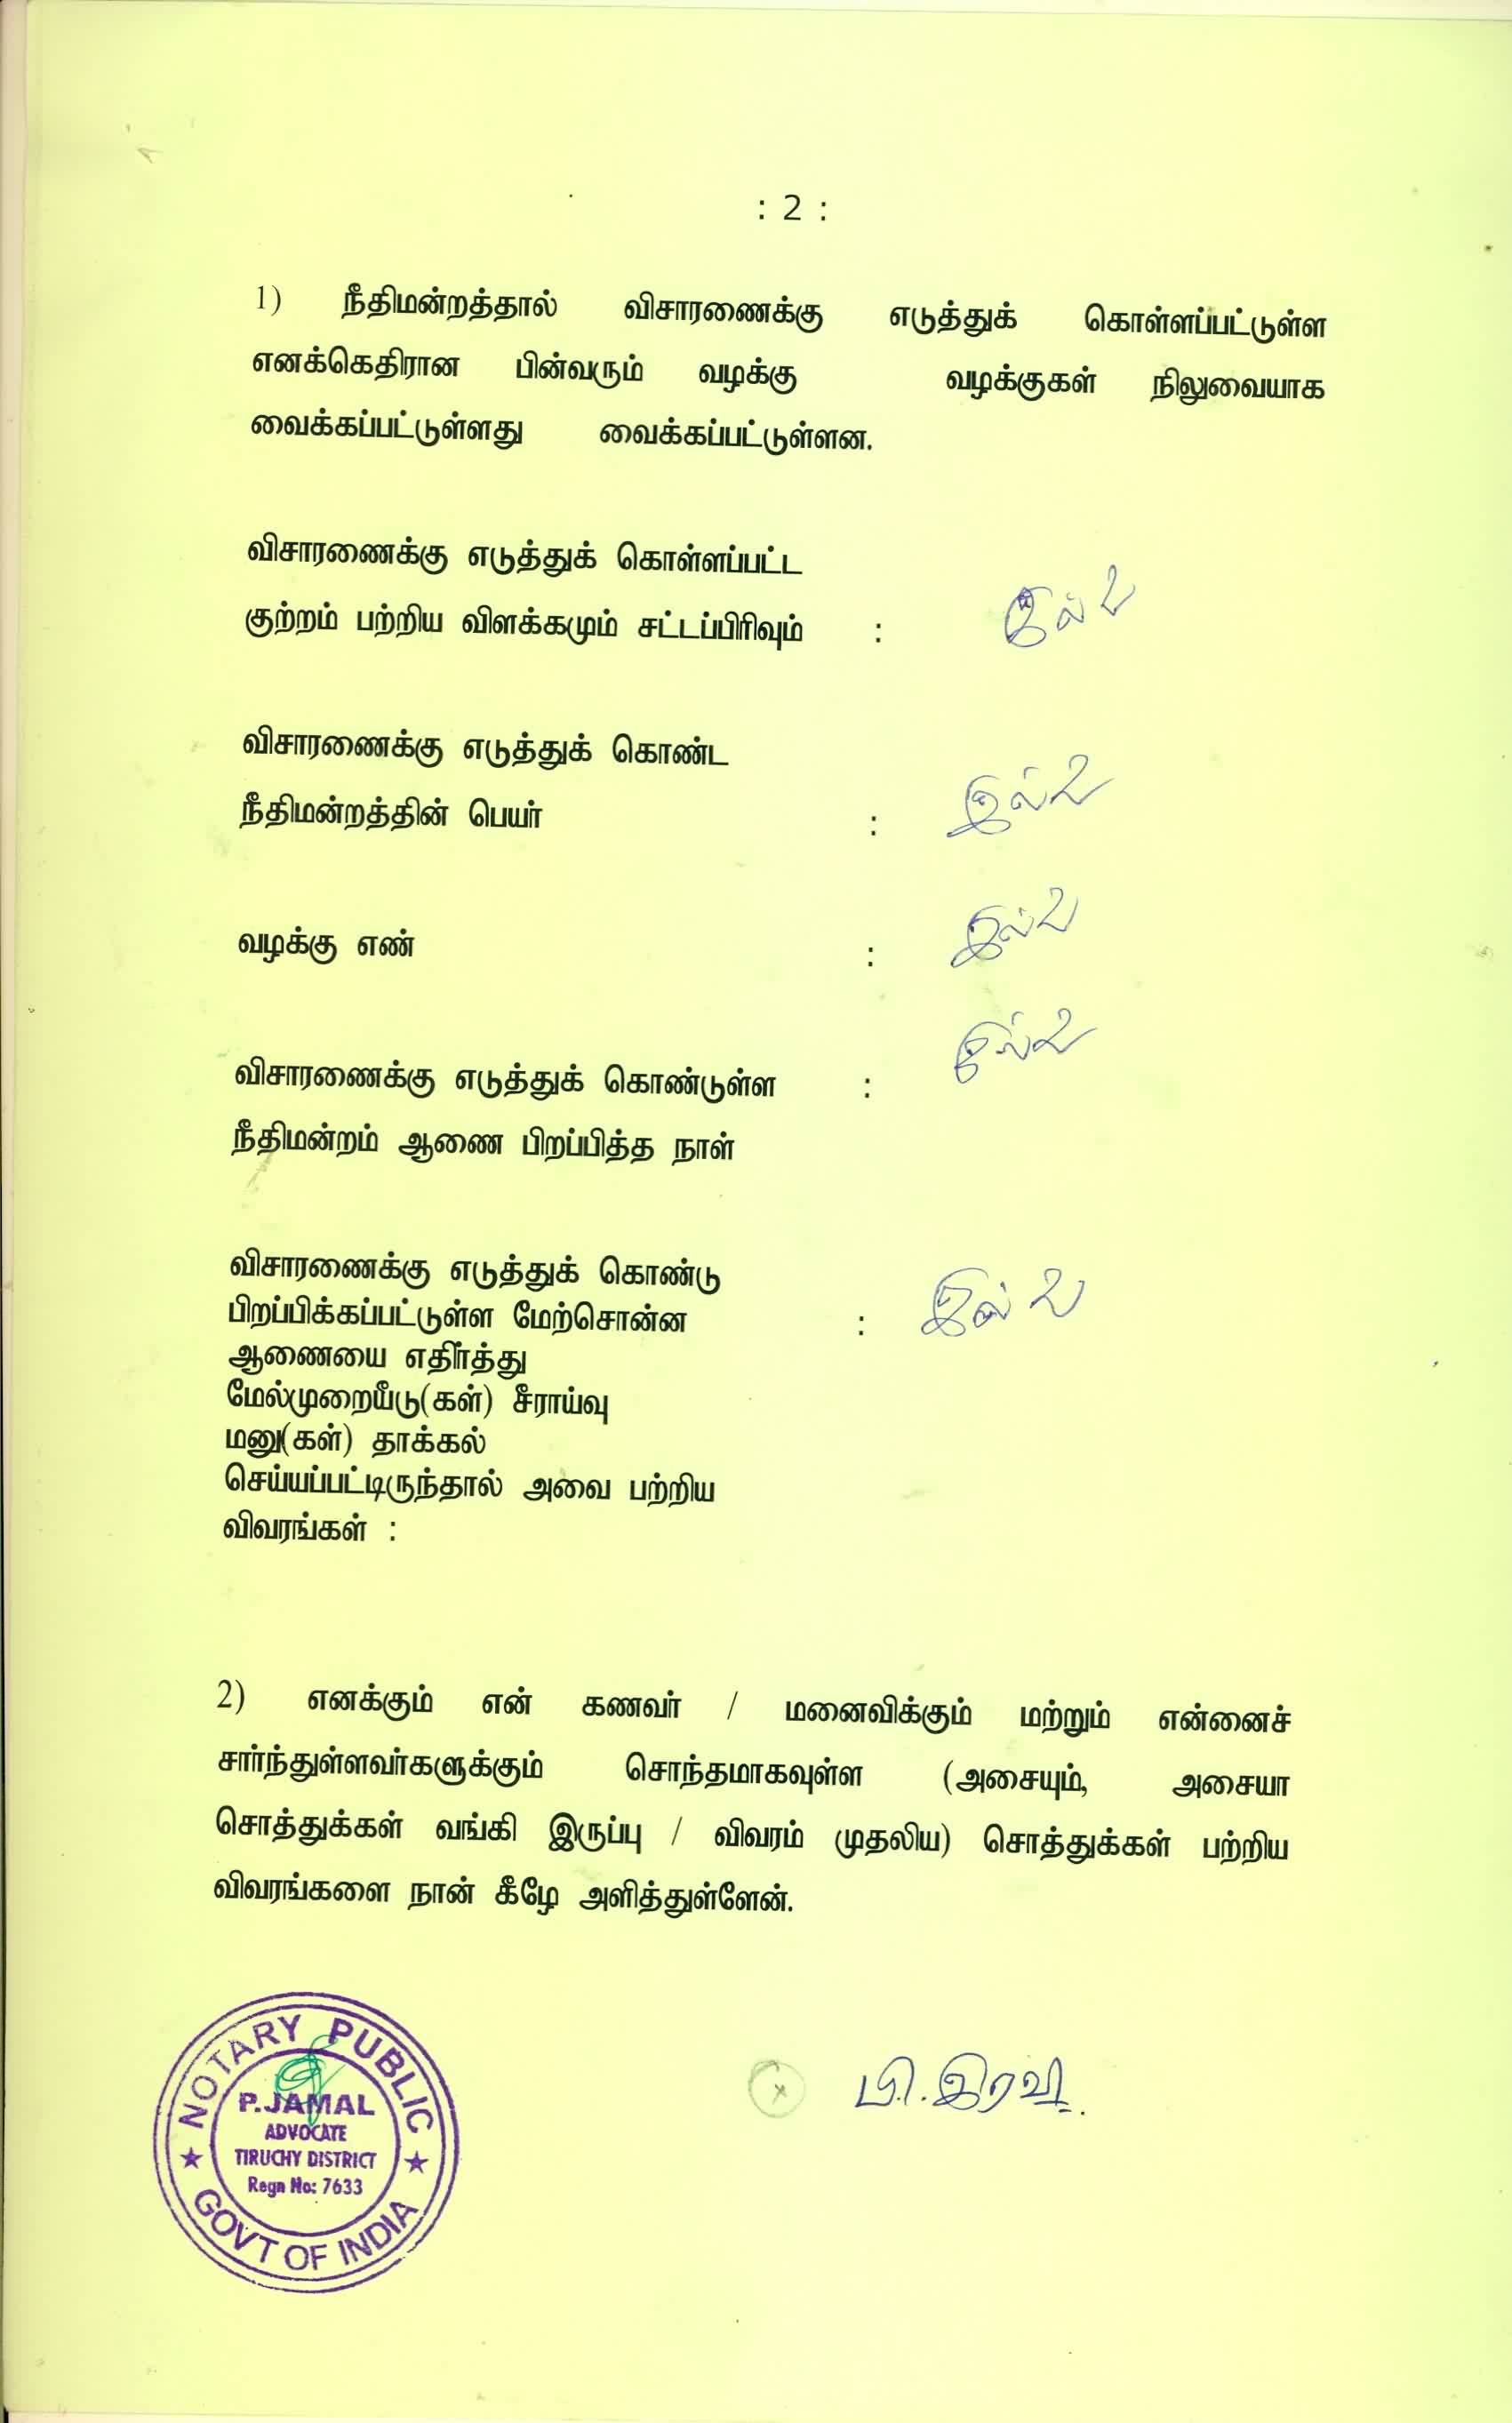 : 2 :
1) நீதிமன்றத்தால் விசாரணைக்கு எடுத்துக் கொள்ளப்பட்டுள்ள
எனக்கெதிரான பின்வரும் வழக்கு வழக்குகள் நிலுவையாக
வைக்கப்பட்டுள்ளது வைக்கப்பட்டுள்ளன.
விசாரணைக்கு எடுத்துக் கொள்ளப்பட்ட
குற்றம் பற்றிய விளக்கமும் சட்டப்பிரிவும் : இல்லை
விசாரணைக்கு எடுத்துக் கொண்ட
நீதிமன்றத்தின் பெயர் : இல்லை
வழக்கு எண் : இல்லை
விசாரணைக்கு எடுத்துக் கொண்டுள்ள : இல்லை
நீதிமன்றம் ஆணை பிறப்பித்த நாள்
விசாரணைக்கு எடுத்துக் கொண்டு
பிறப்பிக்கப்பட்டுள்ள மேற்சொன்ன : இல்லை
ஆணையை எதிர்த்து
மேல்முறையீடு(கள்) சீராய்வு
மனு(கள்) தாக்கல்
செய்யப்பட்டிருந்தால் அவை பற்றிய
விவரங்கள் :
2) எனக்கும் என் கணவர் / மனைவிக்கும் மற்றும் என்னைச்
சார்ந்துள்ளவர்களுக்கும் சொந்தமாகவுள்ள (அசையும், அசையா
சொத்துக்கள் வங்கி இருப்பு / விவரம் முதலிய) சொத்துக்கள் பற்றிய
விவரங்களை நான் கீழே அளித்துள்ளேன்.
NOTARY PUBLIC
P.JAMAL
ADVOCATE
TIRUCHY DISTRICT
Regn No: 7633
GOVT OF INDIA
x பி.இரவி.